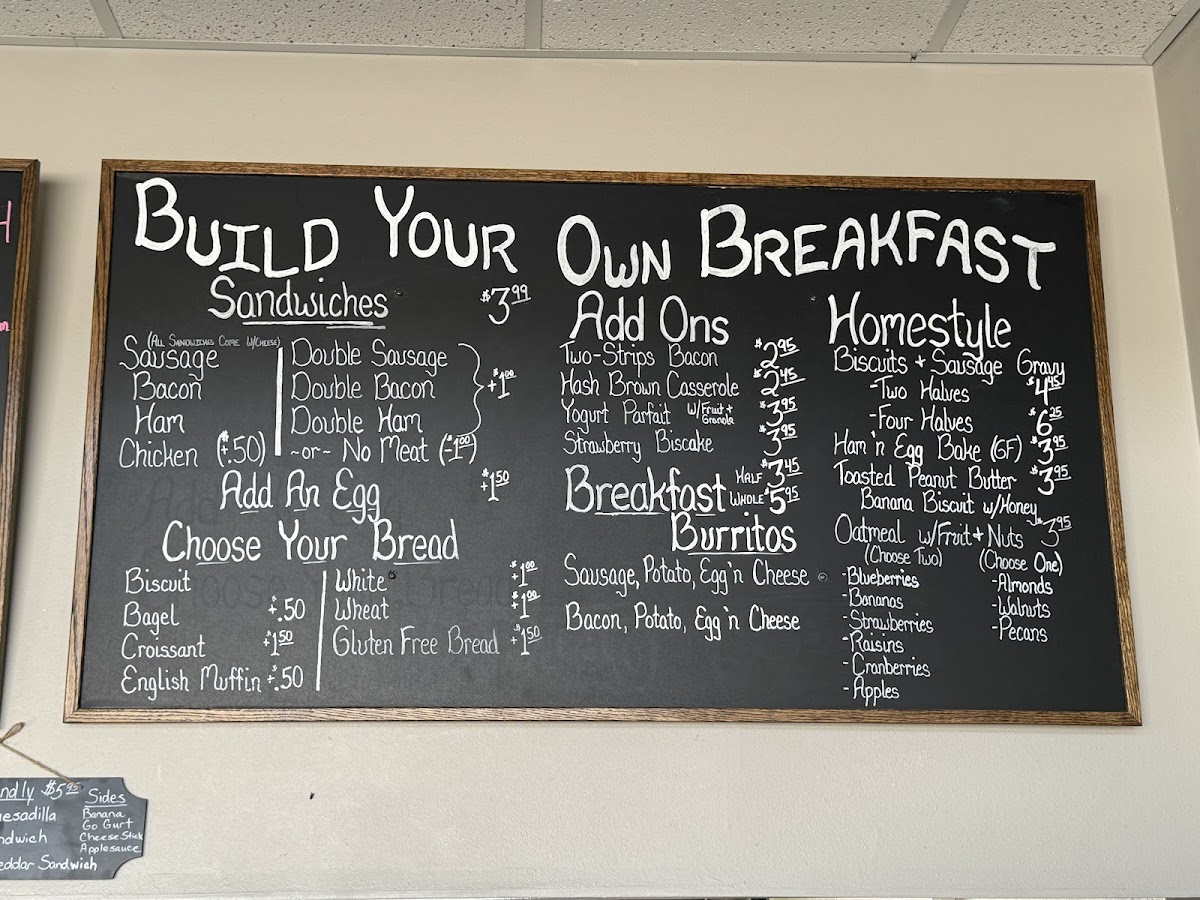 BUILD YOUR OWN BREAKFAST
Sandwiches $3.99
(ALL SANDWICHES COME W/CHEESE)
Sausage
Bacon
Ham
Chicken (+$.50)
Double Sausage
Double Bacon
Double Ham
+$1.00
~or~ No Meat (-$1.00)
Add An Egg +$1.50
Choose Your Bread
Biscuit
Bagel +$.50
Croissant +$1.50
English Muffin +$.50
White +$1.00
Wheat +$1.00
Gluten Free Bread +$1.50
Add Ons
Two-Strips Bacon $2.95
Hash Brown Casserole $2.45
Yogurt Parfait W/Fruit + Granola $3.95
Strawberry Biscake $3.95
Breakfast Burritos
HALF $3.45
WHOLE $5.95
Sausage, Potato, Egg 'n Cheese
Bacon, Potato, Egg 'n Cheese
Homestyle
Biscuits + Sausage Gravy
-Two Halves $4.45
-Four Halves $6.25
Ham 'n Egg Bake (GF) $3.95
Toasted Peanut Butter $3.95
Banana Biscuit w/Honey
Oatmeal w/Fruit + Nuts $3.95
(Choose Two)
-Blueberries
-Bananas
-Strawberries
-Raisins
-Cranberries
-Apples
(Choose One)
-Almonds
-Walnuts
-Pecans
$5.95
Sandwich
Sides
Banana
Go Gurt
Cheese Stick
Applesauce